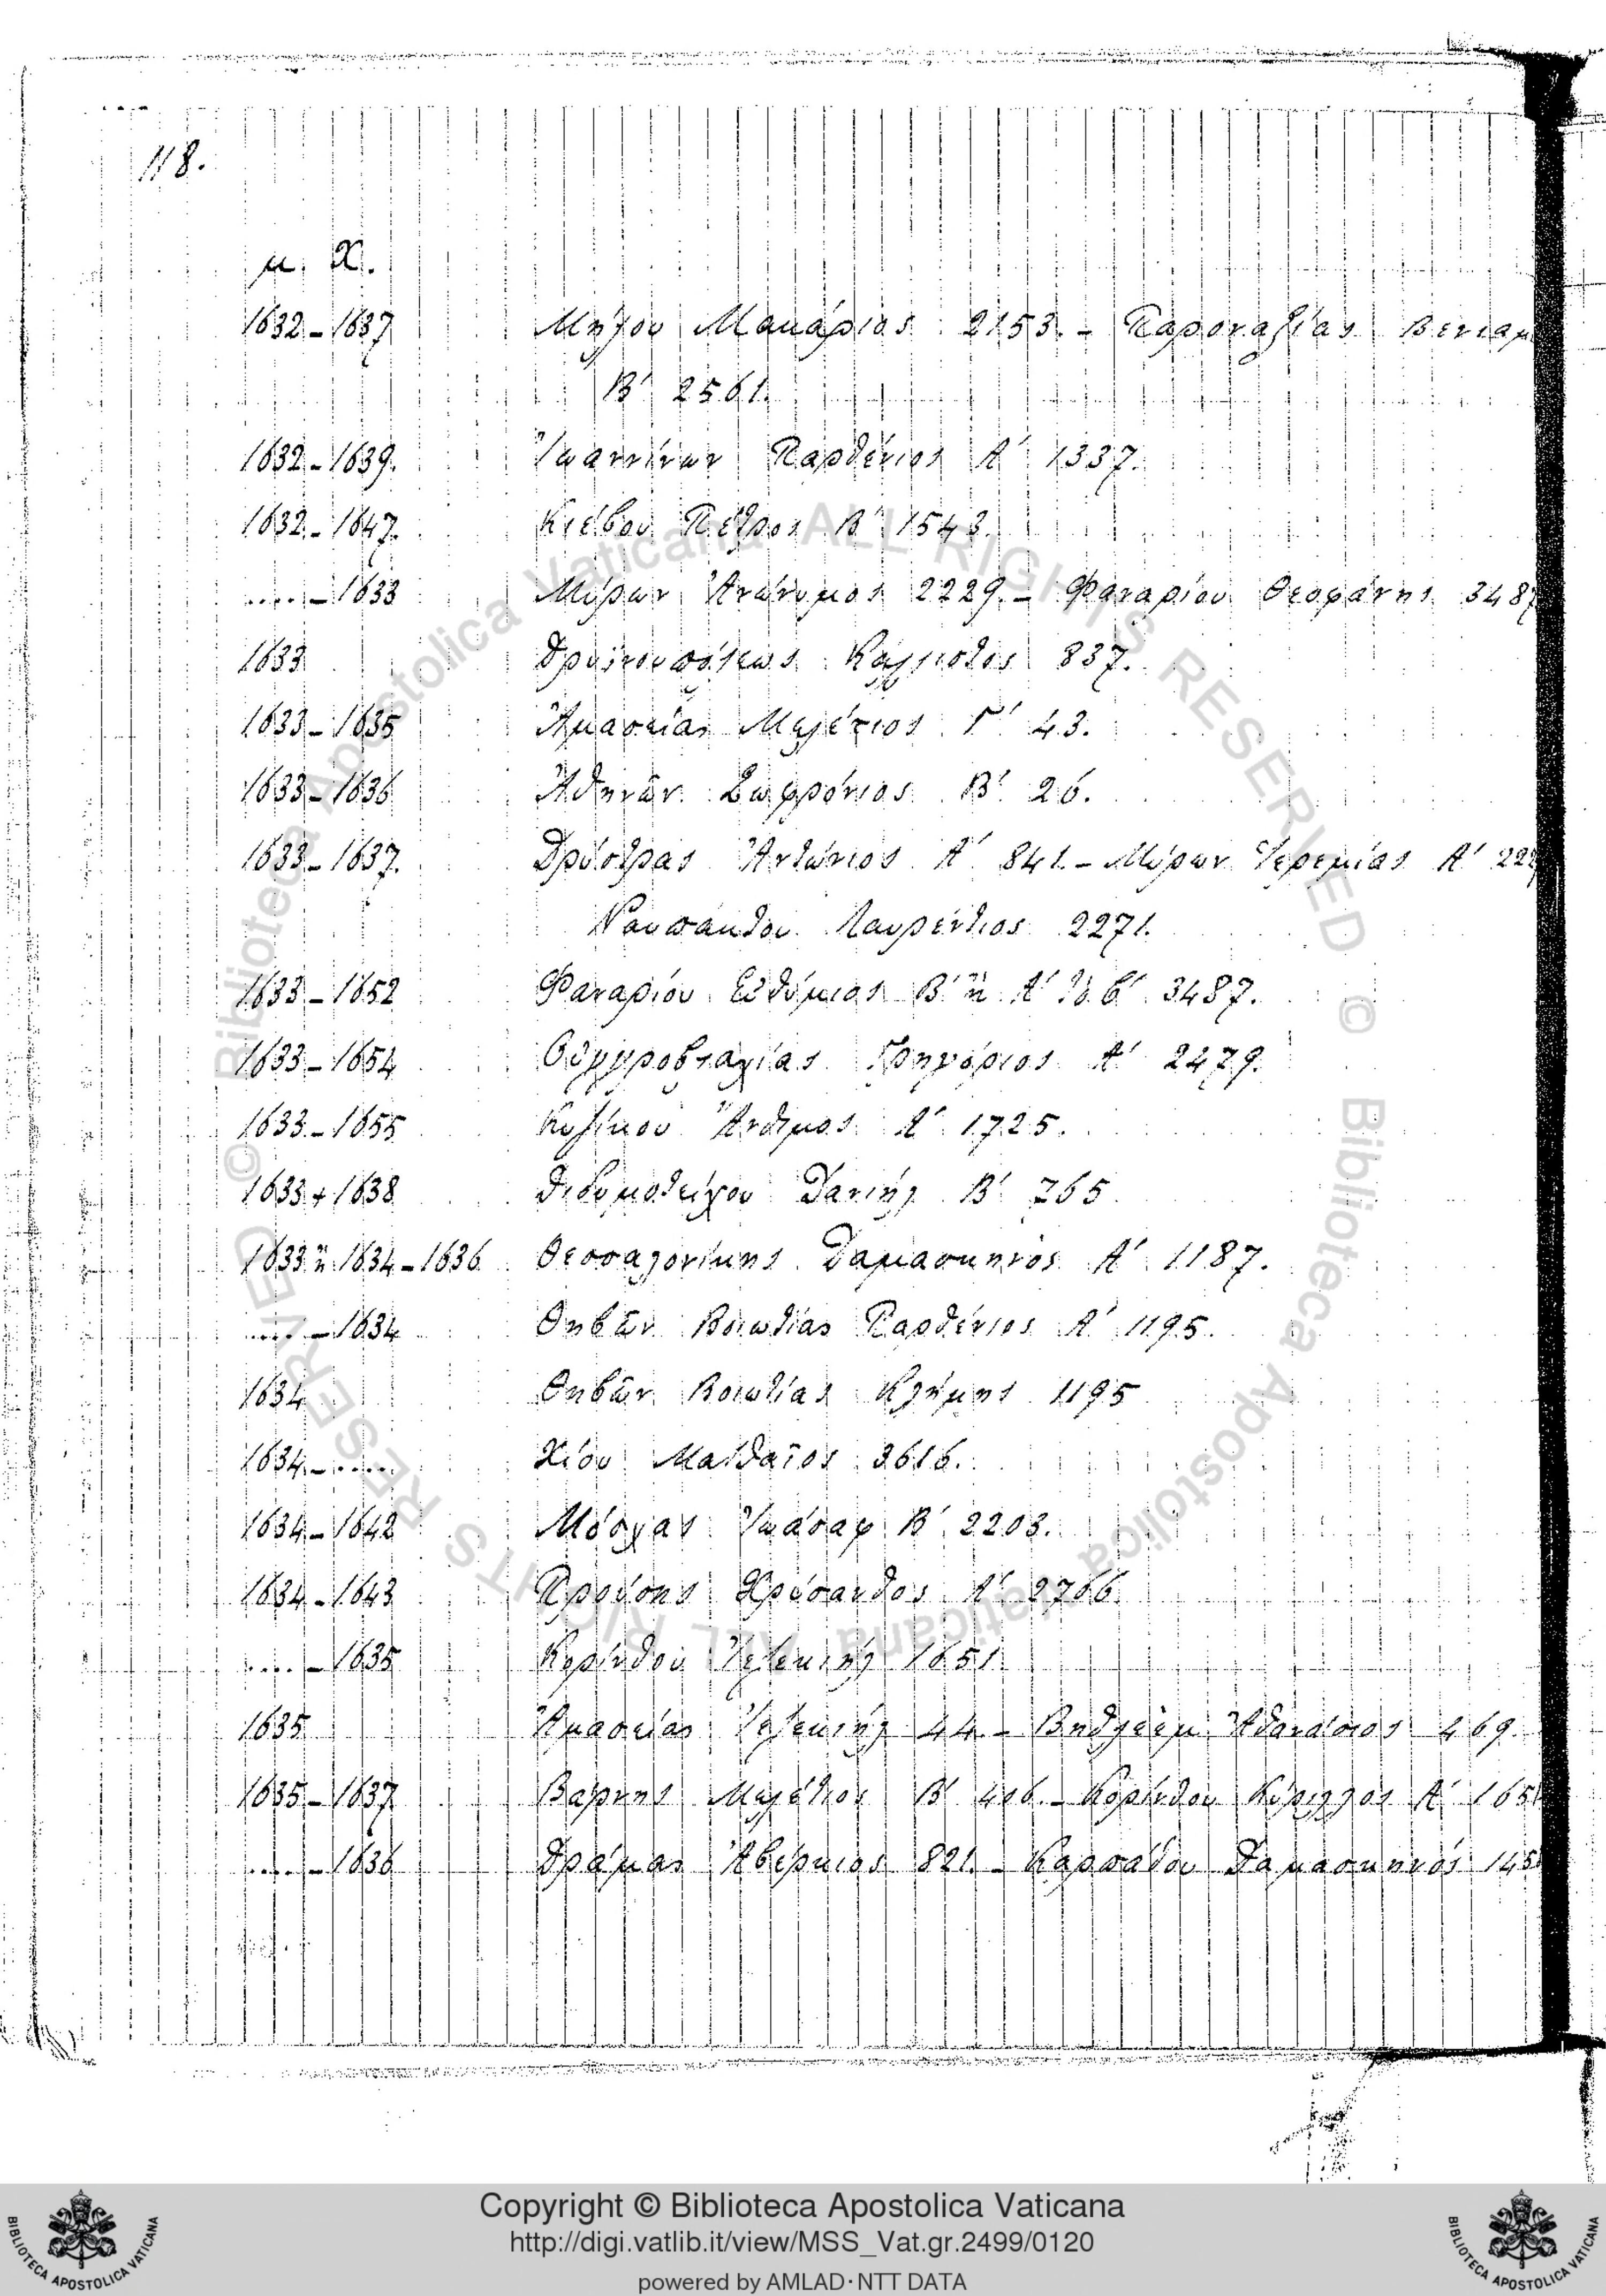 118.
μ. Χ.
1632 - 1637 Μήλου Μακάριος 2153. - Παροναξίας Βενιαμ
Β' 2561.
1632 - 1639. Ἰωαννίνων Παρθένιος Α' 1337.
1632 - 1647. Κιέβου Πέτρος Β' 1543.
..... - 1633 Μύρων Ἀνώνυμος 2229. - Φαναρίου Θεοφάνης 3487
1633 Δρυϊνουπόλεως Κάλλιστος 837.
1633 - 1635 Ἀμασείας Μελέτιος Γ' 43.
1633 - 1636 Ἀθηνῶν Σωφρόνιος Β' 26.
1633 - 1637. Δρύστρας Ἀντώνιος Α' 841. - Μύρων Ἱερεμίας Α' 222
Ναυπάκτου Λαυρέντιος 2271.
1633 - 1652 Φαναρίου Εὐθύμιος Β' ἢ Α' τὸ β' 3487.
1633 - 1654 Οὑγγροβλαχίας Γρηγόριος Α' 2479.
1633 - 1655 Κυζίκου Ἄνθιμος Α' 1725.
1633 + 1638 Διδυμοτείχου Δανιήλ Β' 765
1633 ἢ 1634 - 1636 Θεσσαλονίκης Δαμασκηνός Α' 1187.
..... - 1634 Θηβῶν Βοιωτίας Παρθένιος Α' 1195.
1634 Θηβῶν Βοιωτίας Κλήμης 1195
1634 - ..... Χίου Ματθαῖος 3616.
1634 - 1642 Μόσχας Ἰωάσαφ Β' 2203.
1634 - 1643 Προύσης Χρύσανθος Α' 2766.
..... - 1635 Κορίνθου Ἰεζεκιήλ 1651.
1635 Ἀμασείας Ἰεζεκιήλ 44 - Βηθλεὲμ Ἀθανάσιος 469.
1635 - 1637 Βάρνης Μελέτιος Β' 416. - Κορίνθου Κύριλλος Α' 1651
..... - 1636 Δράμας Ἀβέρκιος 821. - Καρπάθου Δαμασκηνός 145
© Biblioteca Apostolica Vaticana ALL RIGHTS RESERVED © Biblioteca Apostolica Vaticana ALL RIGHTS RESERVED
Copyright © Biblioteca Apostolica Vaticana
http://digi.vatlib.it/view/MSS_Vat.gr.2499/0120
powered by AMLAD·NTT DATA
BIBLIOTECA APOSTOLICA VATICANA
BIBLIOTECA APOSTOLICA VATICANA